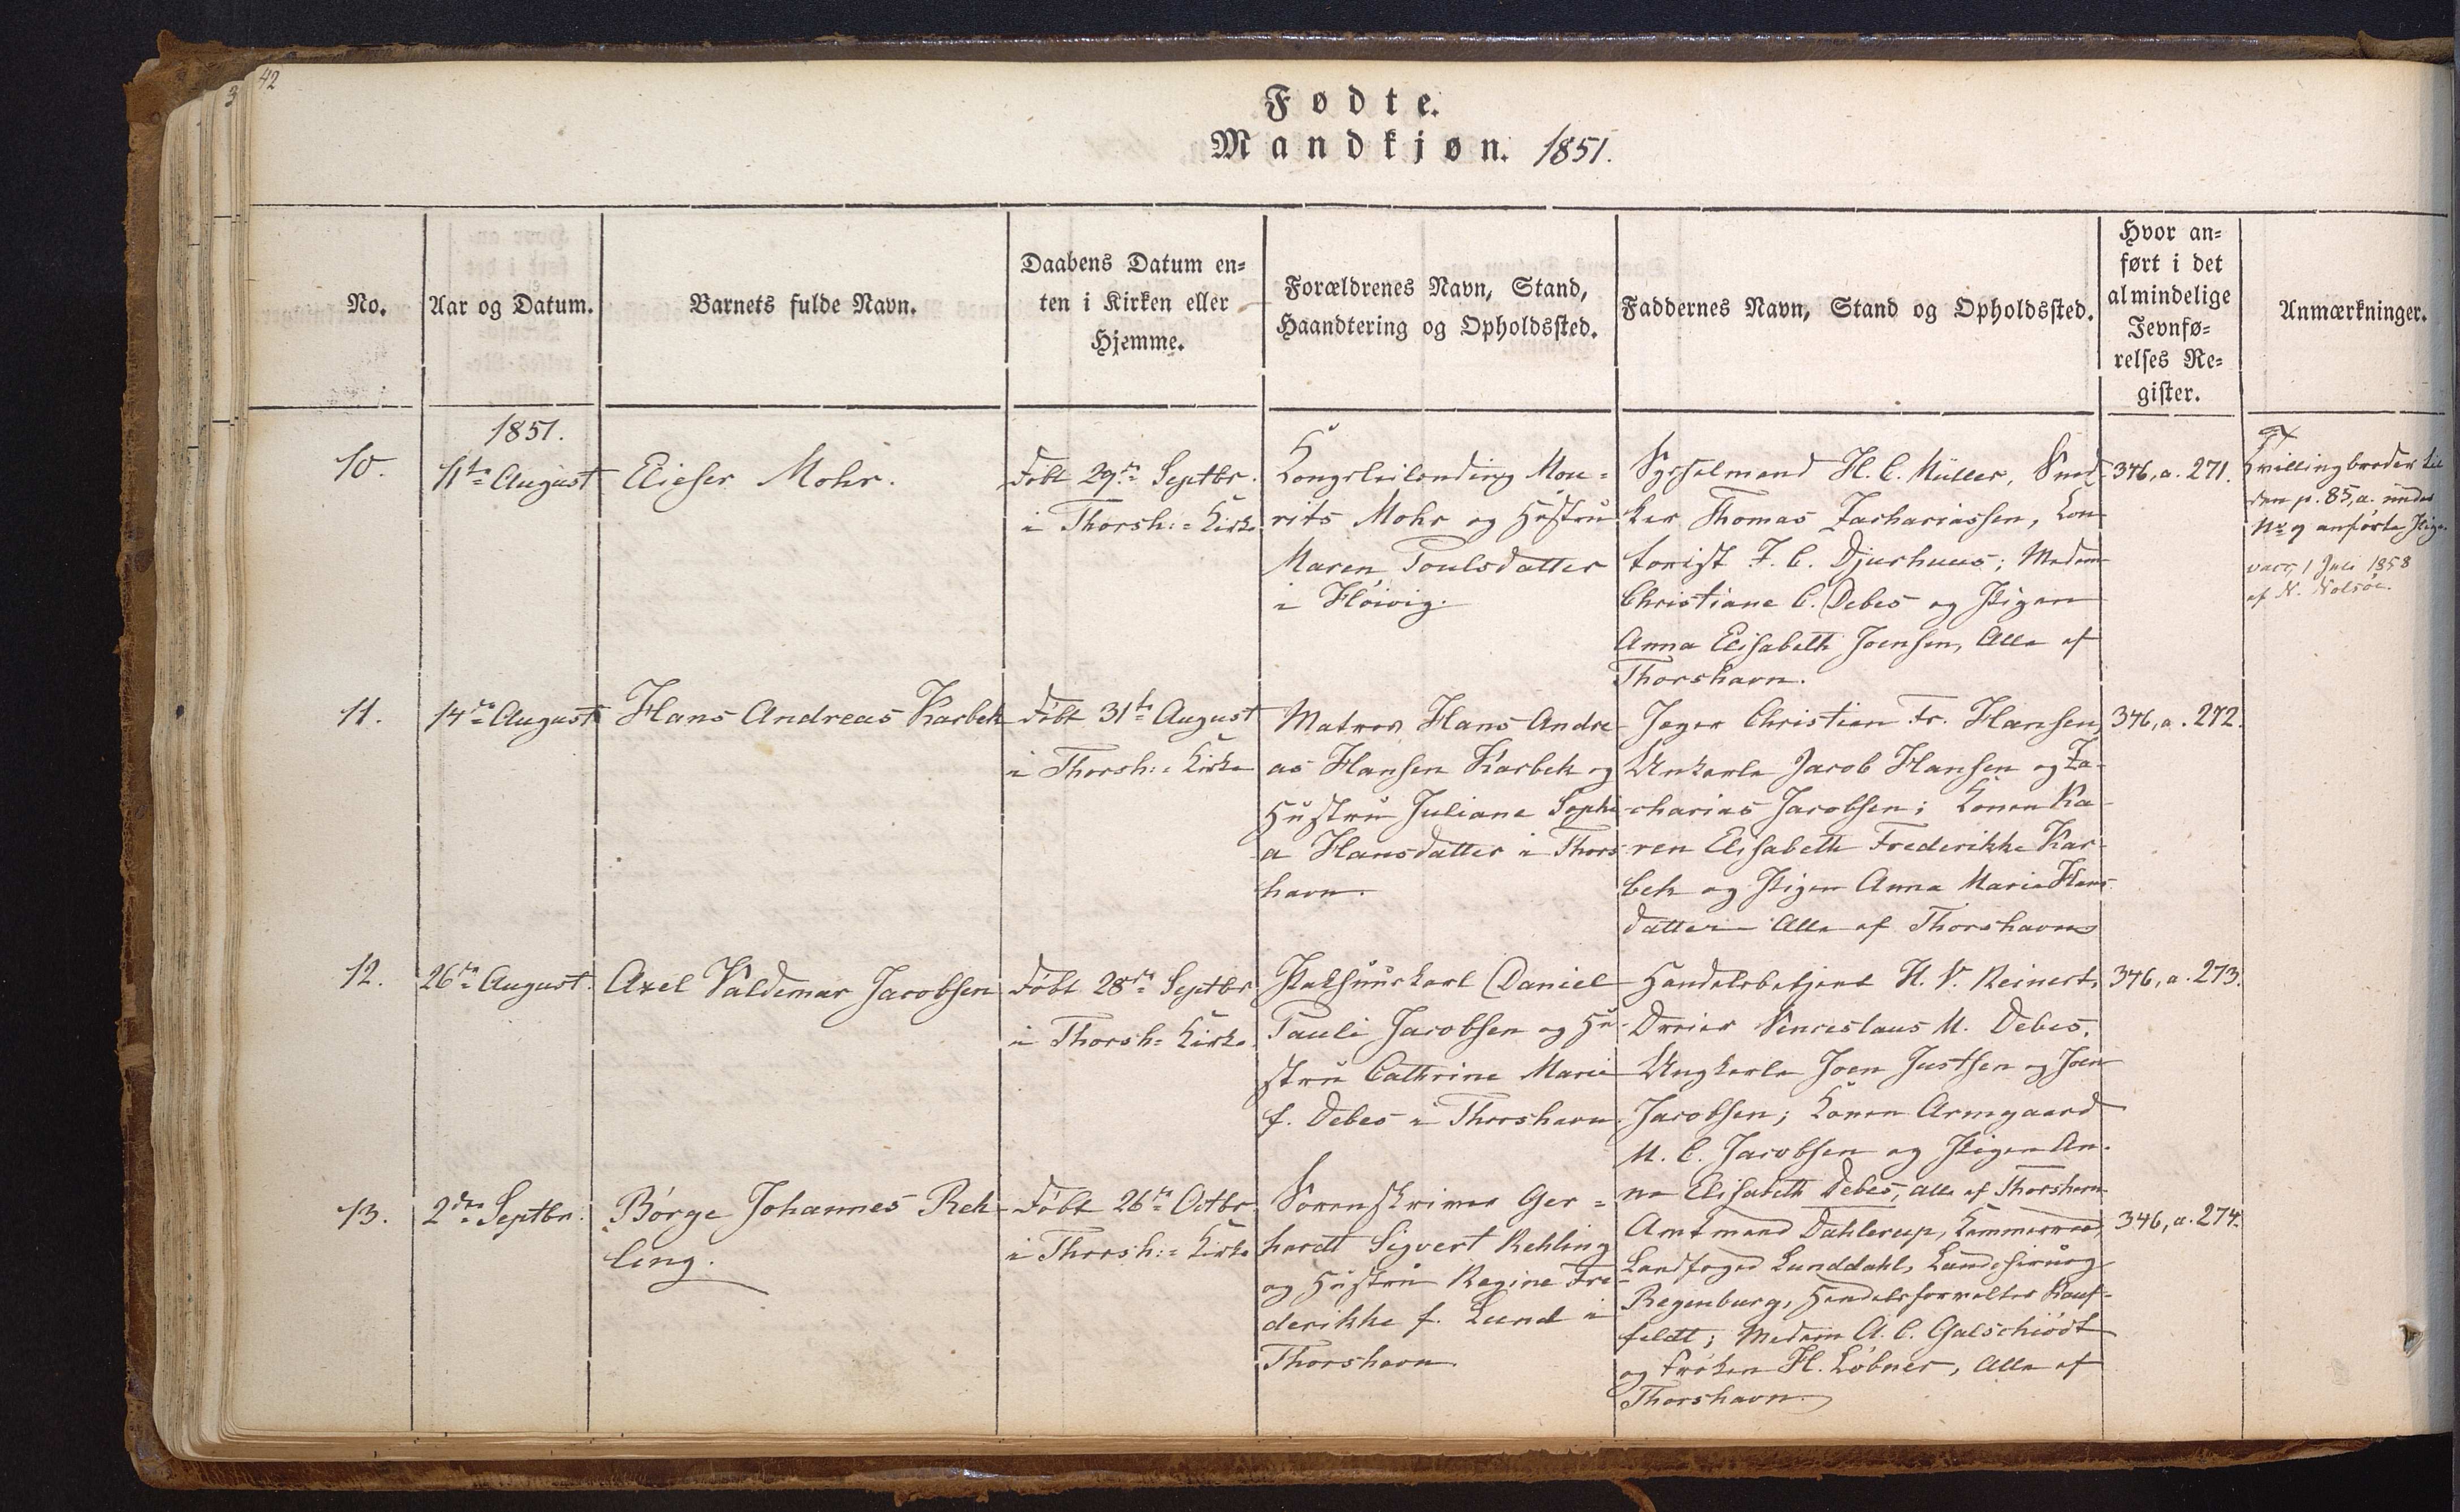 42
3
Fødte.
Mandkjøn. 1851.
No.
Aar og Datum.
Barnets fulde Navn.
Daabens Datum en=
ten i Kirken eller
Hjemme.
Forældrenes Navn, Stand,
Haandtering og Opholdssted.
Faddernes Navn, Stand og Opholdssted.
Hvor an=
ført i det
almindelige
Jevnfø=
relses Re=
gister.
Anmærkninger.
1851.
10.
11te August
Elieser Mohr.
Døbt 29de Septbr.
i Thorsh:= Kirke
Kongsleilending Mou=
rits Mohr og Hustru
Maren Poulsdatter
i Høivig.
Sysselmand H. C. Müller, Sned
ker Thomas Zachariassen, Con
torist J. C. Djurhuus; Madam
Christiane C. Debes og Pigen
Anna Elisabeth Joensen, Alle af
Thorshavn.
346, a. 271.
Tvillingbroder til
den p. 85, a. under
No 9 anførte Pige.
vacc. 1 Juli 1858
af N. Nolsöe.
11.
14de August
Hans Andreas Karbek
Døbt 31te August
i Thorsh:= Kirke
Matros Hans Andre
as Hansen Karbek og
Hustru Juliane Sophi
a Hansdatter i Thors
havn.
Jæger Christian Fr. Hansen,
Unkarle Jacob Hansen og Za-
charias Jacobsen; Konen Ka-
ren Elisabeth Frederikke Kar-
bek og Pigen Anna Maria Hans
datter Alle af Thorshavn
346, a. 272.
12.
26de August.
Axel Valdemar Jacobsen
Døbt 28de Septbr
i Thorsh= Kirke.
Pakhuuskarl Daniel
Pauli Jacobsen og Hu-
stru Cathrine Marie
f. Debes i Thorshavn.
Handelsbetjent H. V. Reinert,
Dreier Venceslaus U. Debes,
Ungkarle Joen Justsen og Joen
Jacobsen; Konen Armgaard
M. C. Jacobsen og Pigen An-
na Elisabeth Debes, alle af Thorshavn
346, a. 273.
13.
2den Septbr.
Börge Johannes Reh-
ling.
Døbt 26de Octbr.
i Thorsh:= Kirke
Sorenskriver Ger=
hardt Sigvert Rehling
og Hustru Regine Fre-
derikke f. Lund i
Thorshavn.
Amtmand Dahlerup, Kammerraad,
Landfoged Lunddahl, Landchirurg
Regenburg, Handelsforvalter Kauf-
feldt; Madam A. C. Galschiödt
og Frøken H. Löbner, Alle af
Thorshavn.
346, a. 274.